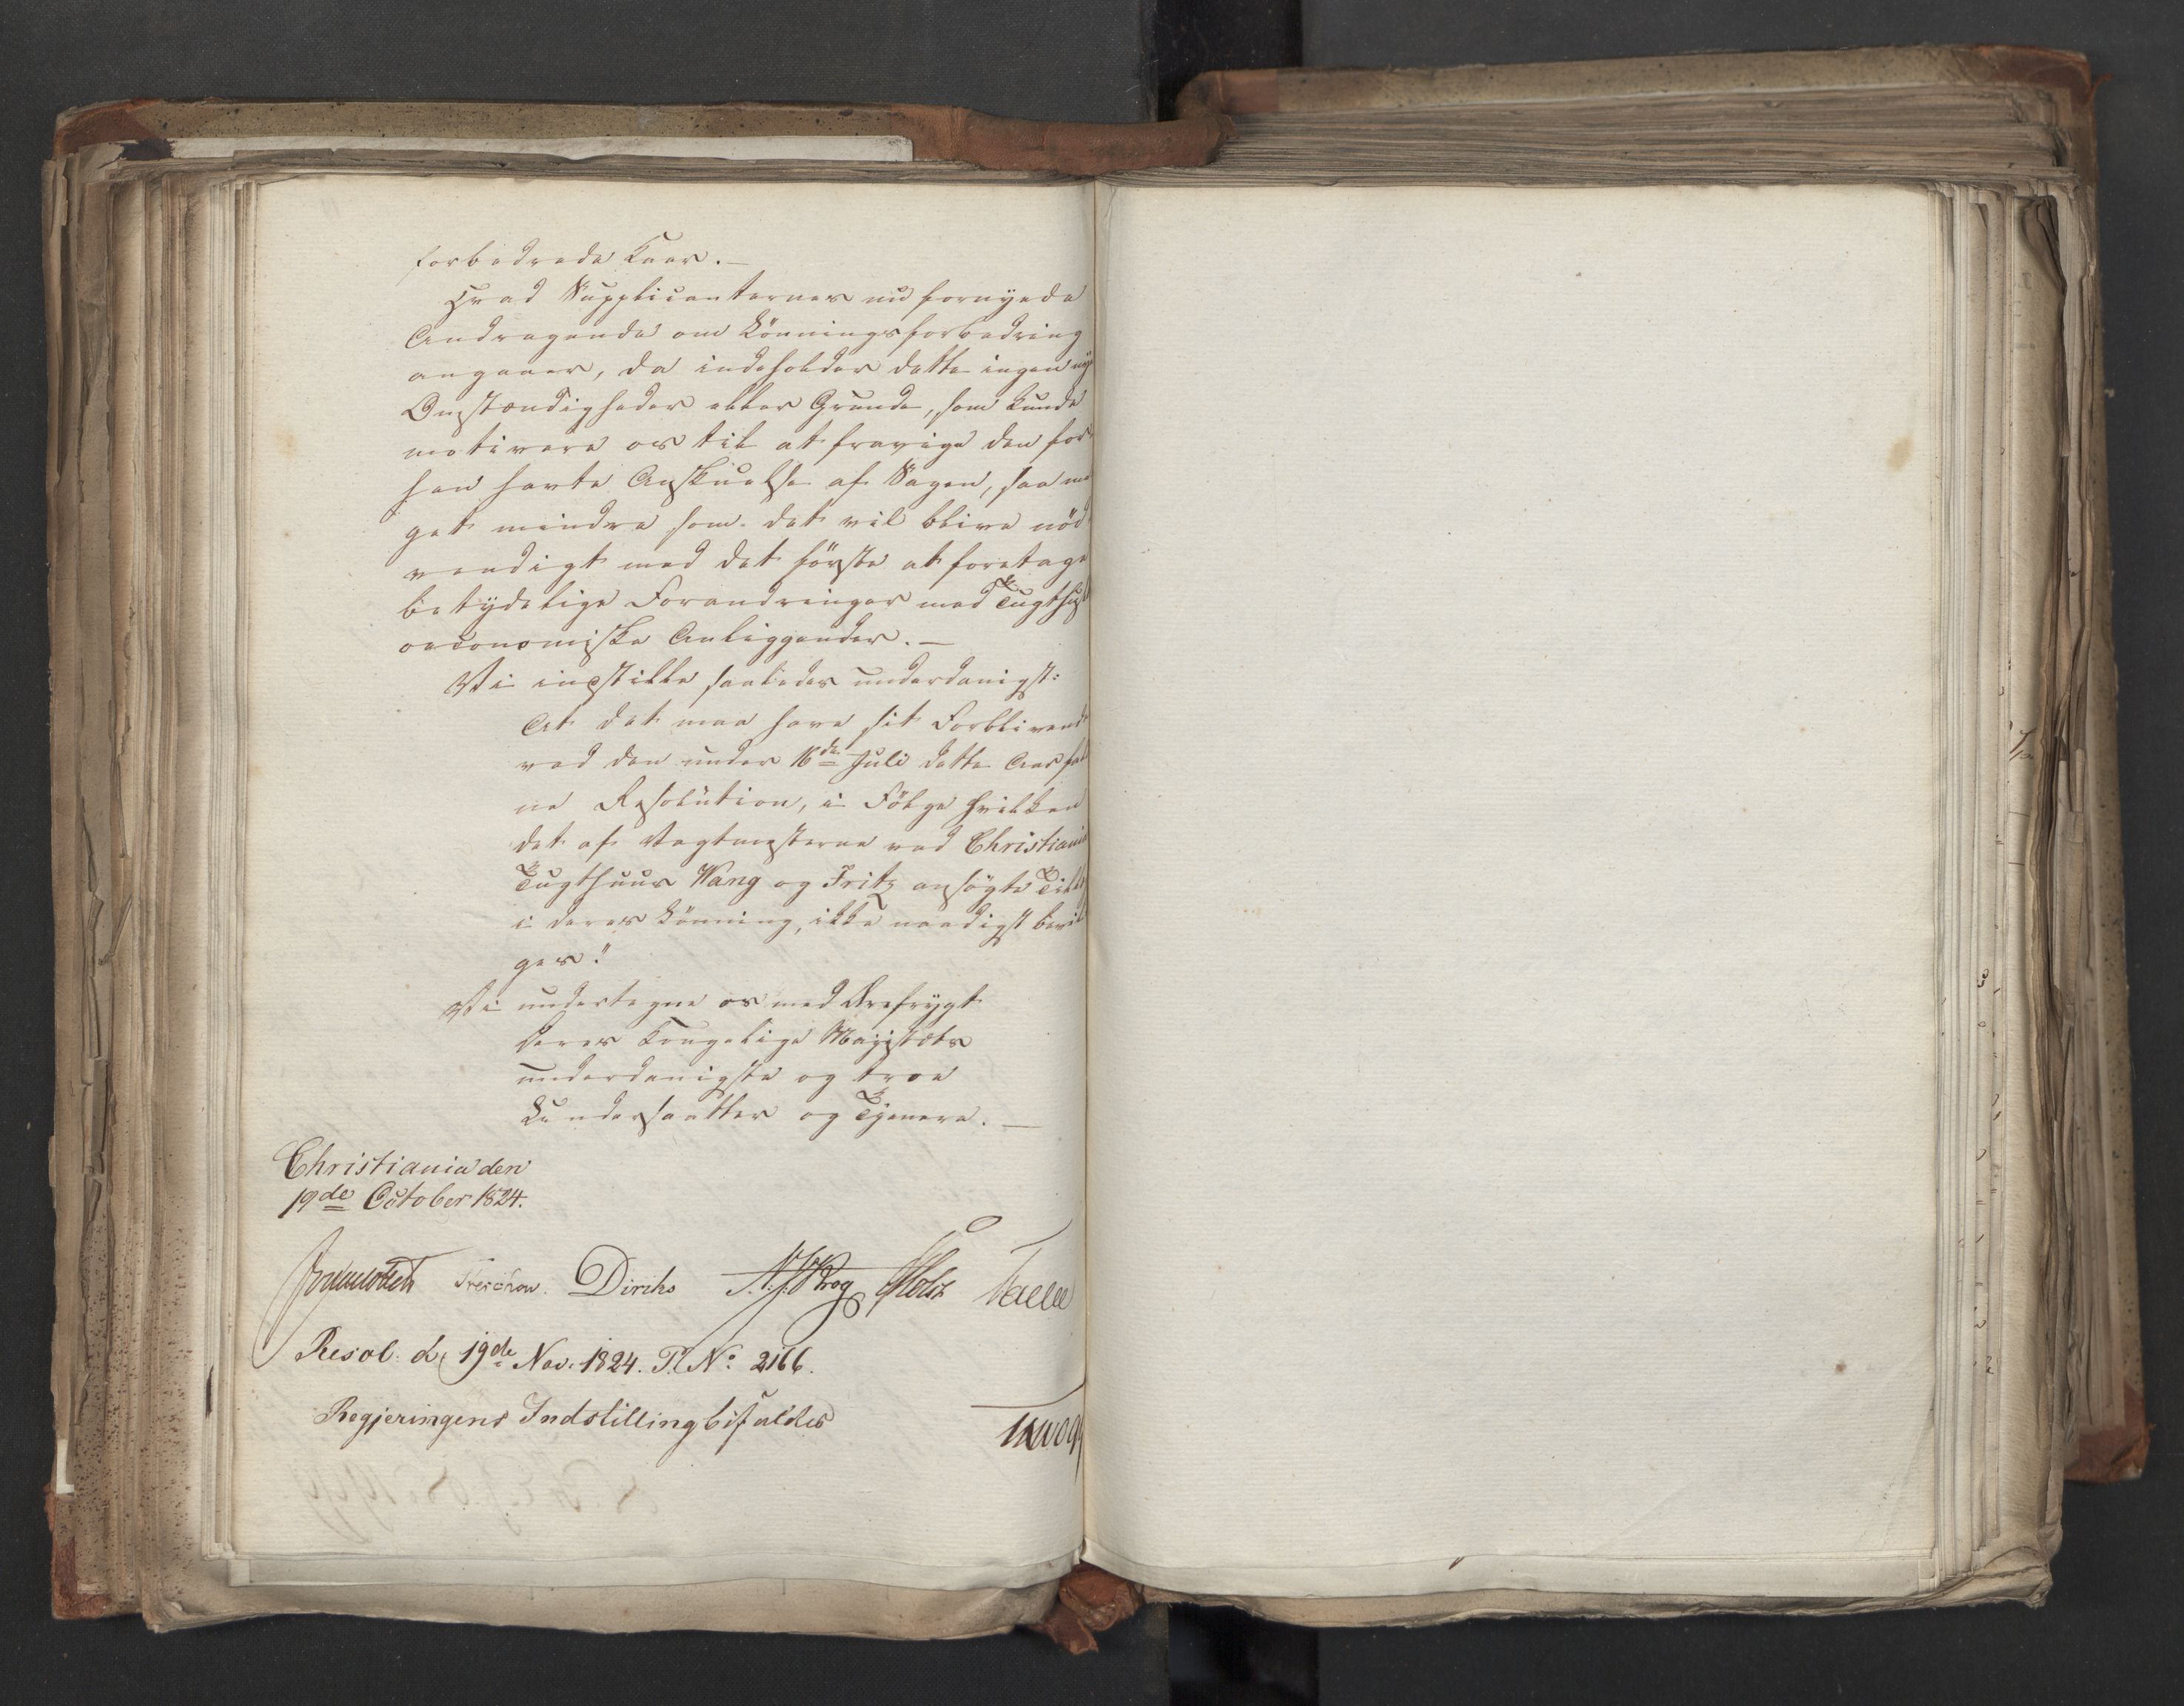 forbedrede Kaar.—
Hvad Supplicanternes nu fornyede
Andragende om Lönningsforbedring
angaaer, da indeholder dette ingen nye
Omstændigheder eller Grunde, som kunde
motivere os til at fravige den for-
hen havte Anskuelse af Sagen, saa me
get mindre som det vil blive nöd-
vendigt med det förste at foretage
betydelige Forandringer med Tugthusets
oeconomiske Anliggender.—
Vi indstille saaledes underdanigst:
At det maa have sit Forblivende
ved den under 16de Juli dette Aar fal
ne Resolution, i Fölge hvilken
det af Vagtmesterne ved Christiania
Tugthuus Wang og Fritz ansögte Tillæg
i deres Lönning, ikke naadigst bevil
ges."
Vi undertegne os med Ærefrygt
Deres Kongelige Majestæts
underdanigste og troe
Undersaatter og Tjenere.—
Christiania den
19de October 1824.
Treschow. Diriks N. J. Krog Holst
Resol. d. 19de Nov. 1824. P. No. 2166.
Regjeringens Indstilling bifaldes